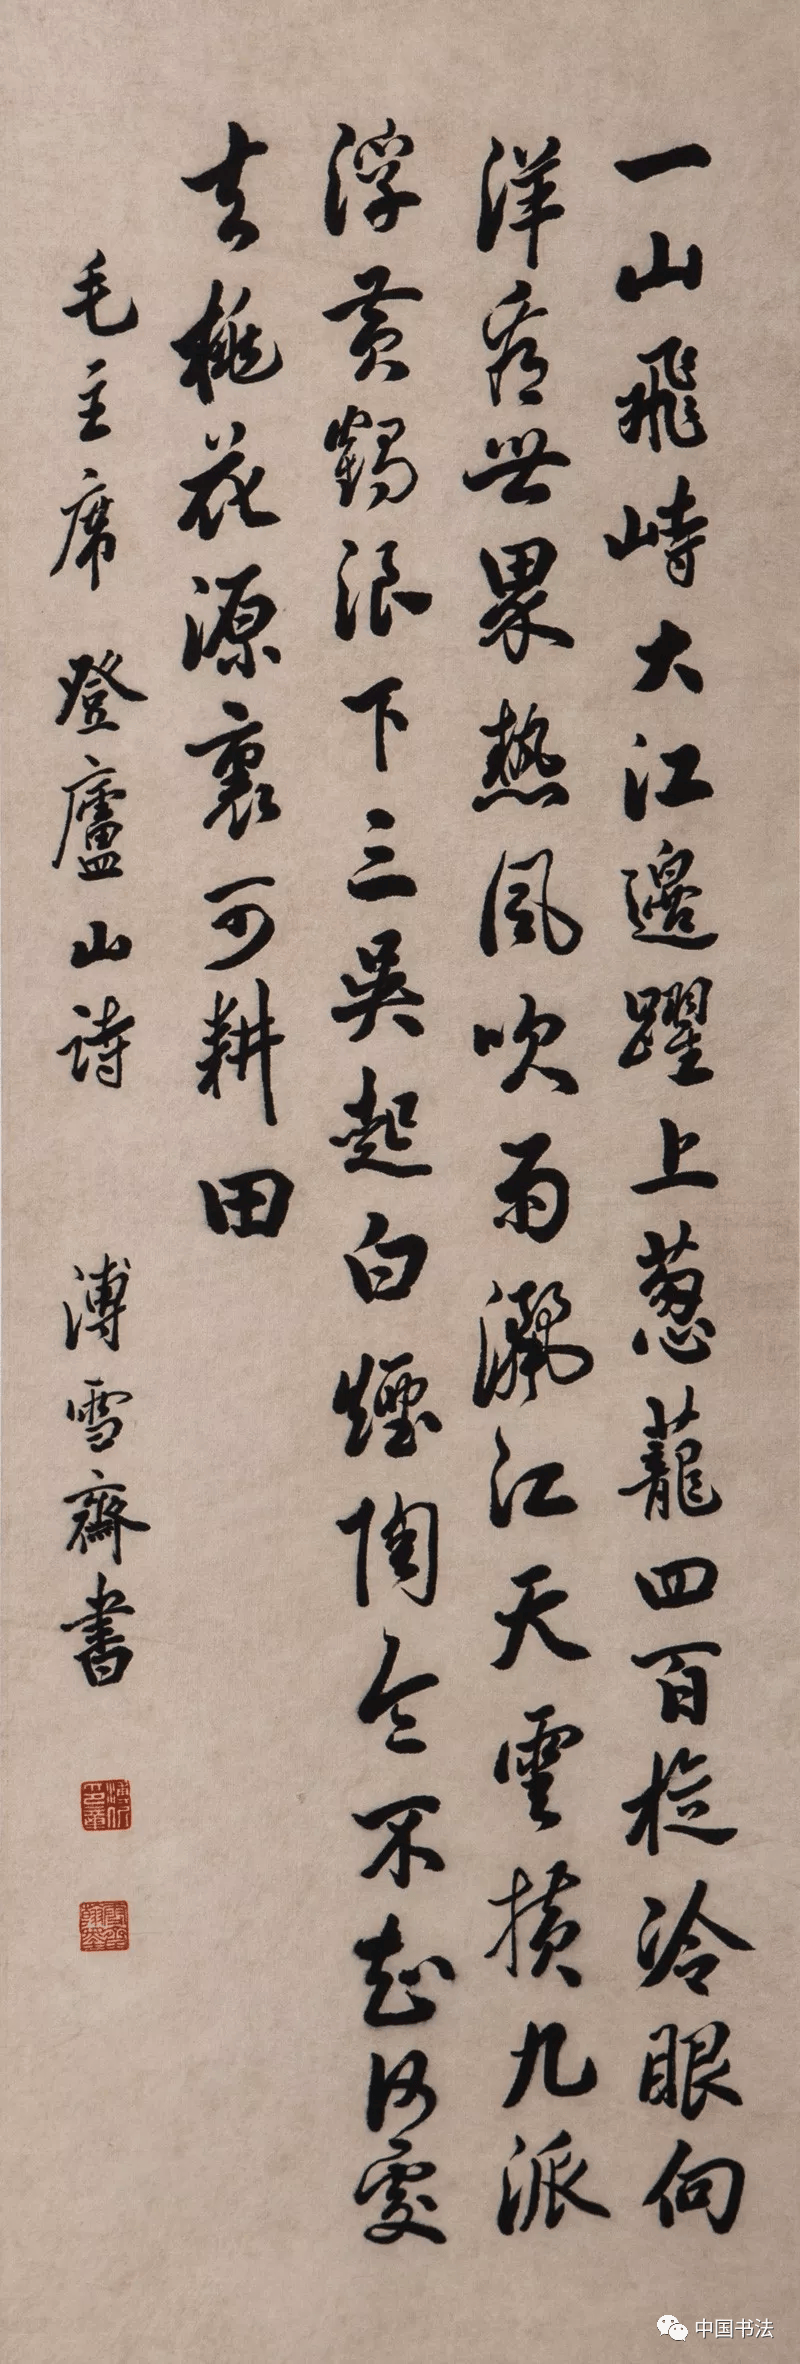 一山飛峙大江邊躍上葱蘢四百旋冷眼向
洋看世界熱風吹雨灑江天雲横九派
浮黃鶴浪下三吴起白煙陶令不知何處
去桃花源裏可耕田
毛主席登廬山詩 溥雪齋書
中国书法